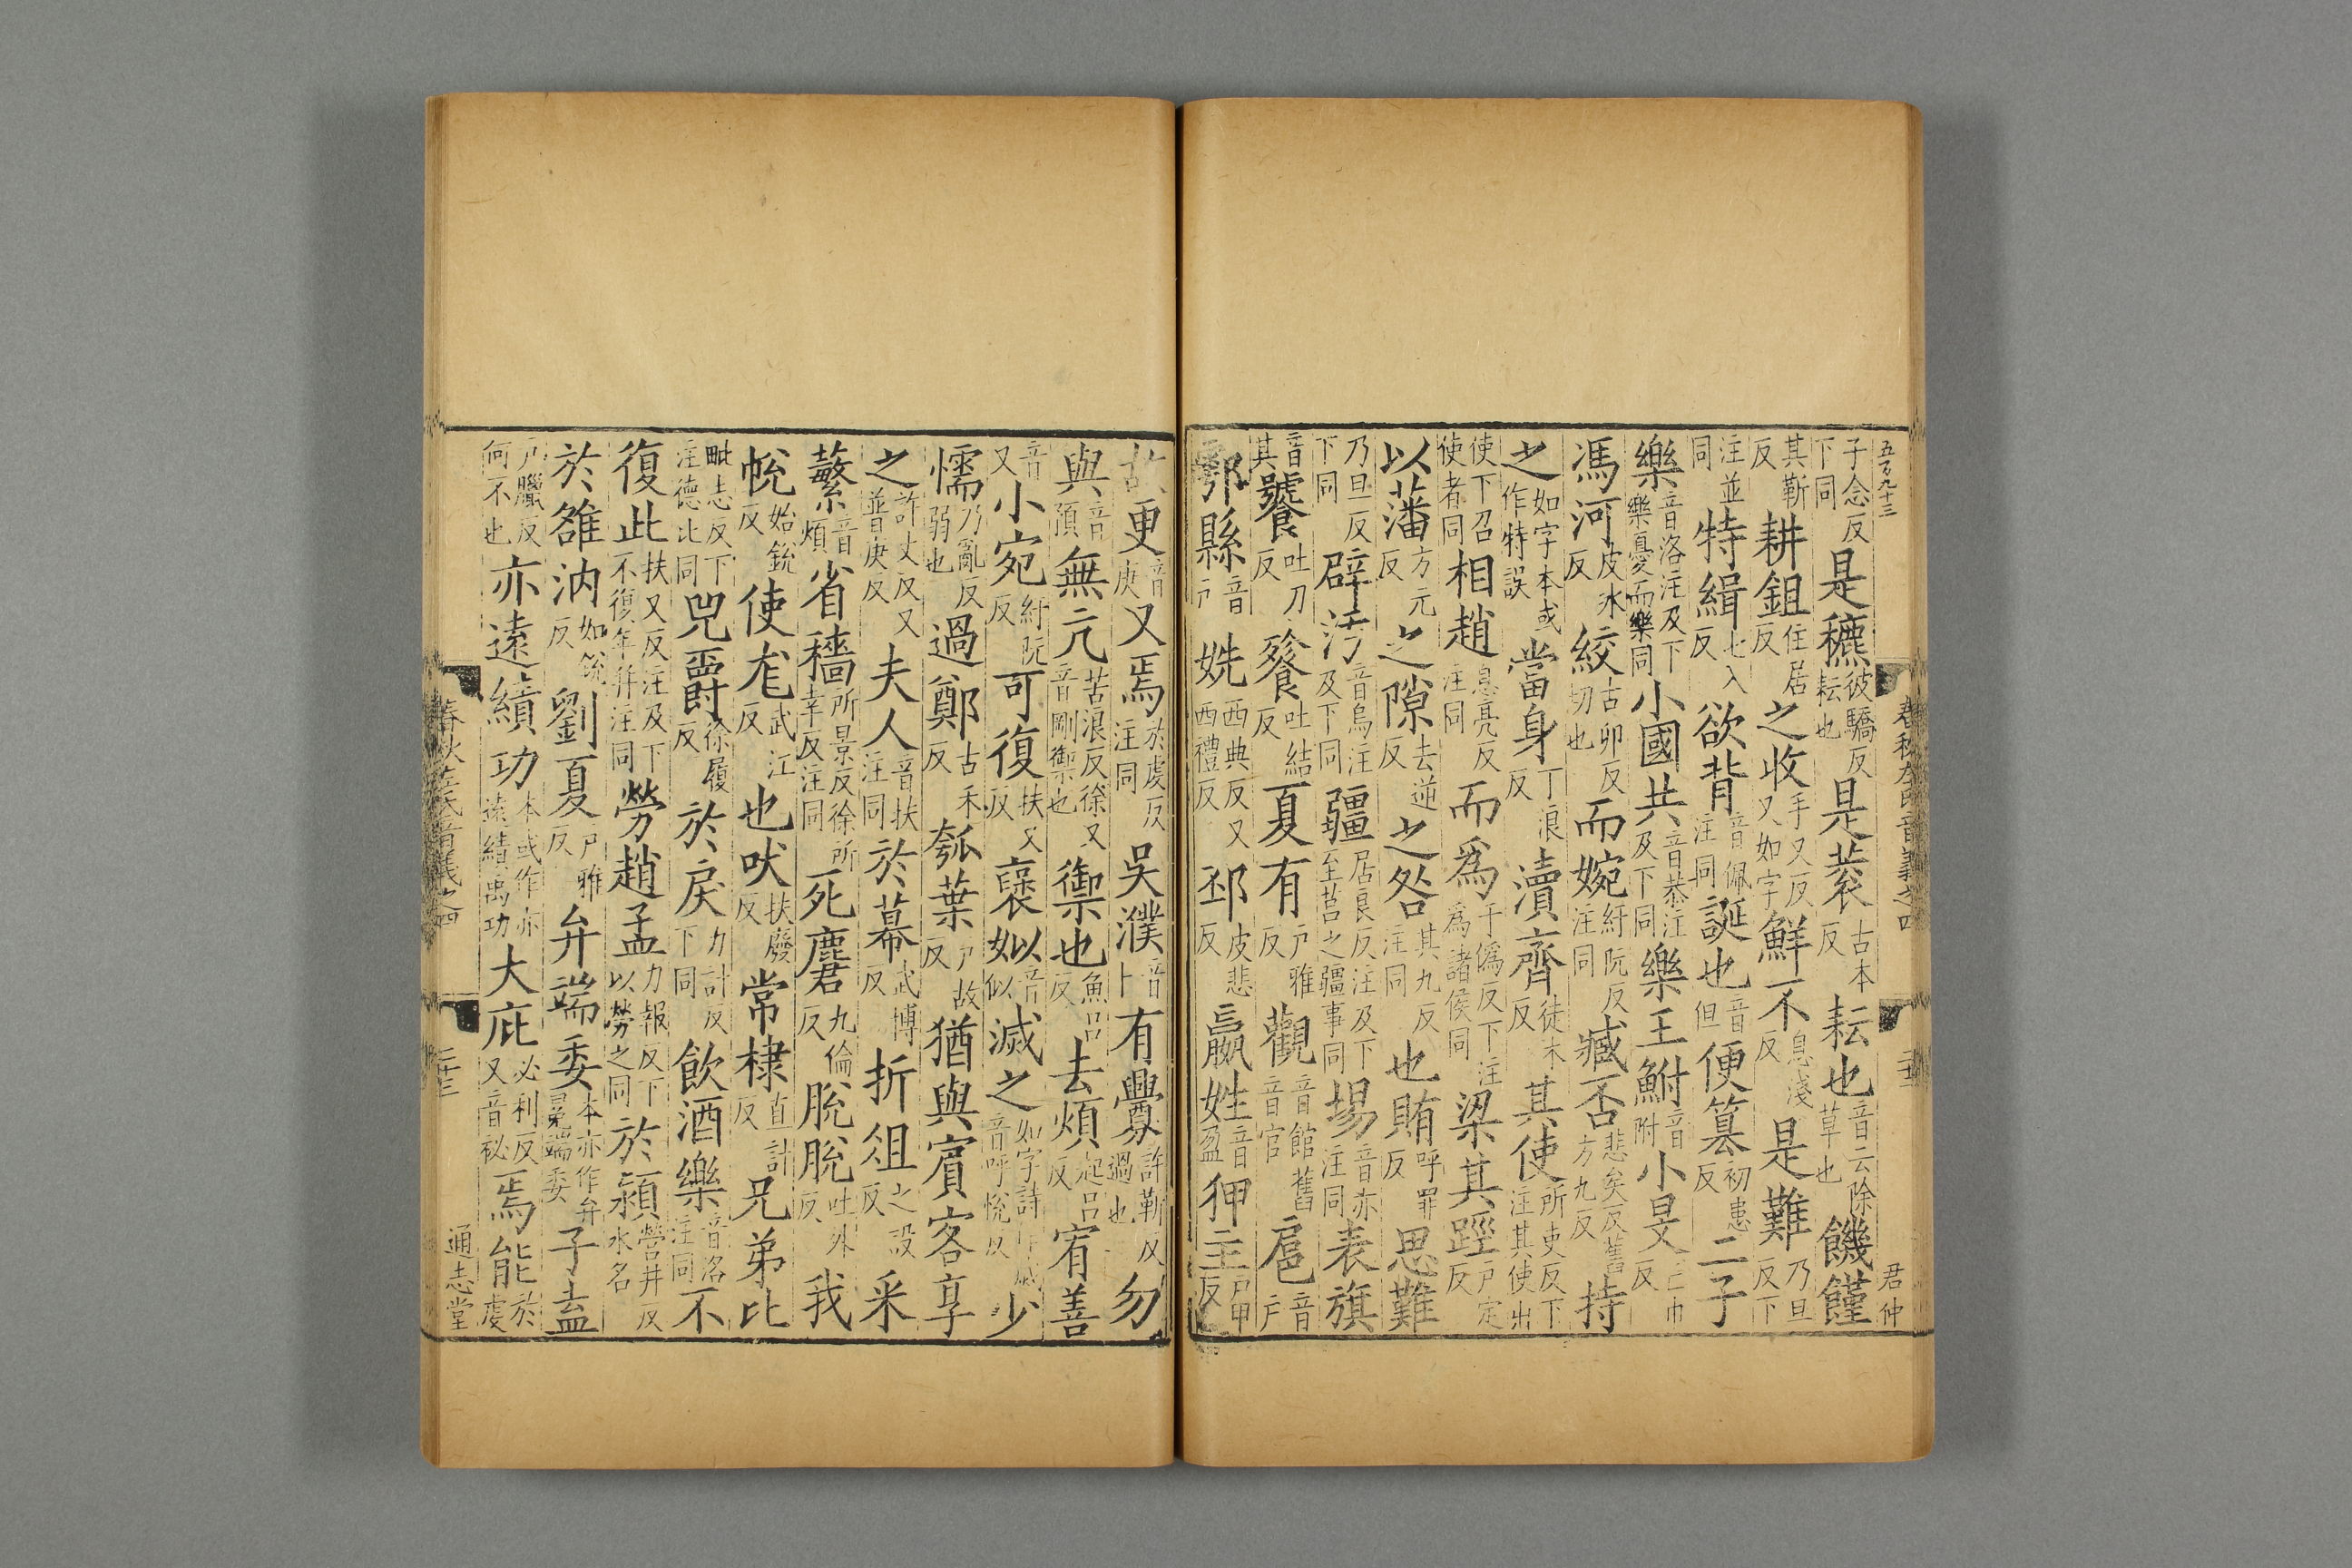 五百九十三
子念反下同是穮彼驕反耘也是蓘古本反耘也音云除草也饑饉
其靳反耕鉏仕居反之收手又反又如字鮮不息淺反是難乃旦反下
注並同特緝七入反欲背音佩注同誕也音但便篡初患反二子
樂音洛注及下樂憂而樂同小國共音恭注及下同樂王鮒音附小旻亡巾反
馮河皮冰反絞古卯反切也而婉紆阮反注同臧否悲矣反舊方九反持
之如字本或作特誤當身丁浪反瀆齊徒木反其使所吏反下注其使出
使下召使者同相趙息亮反注同而為于偽反下注為諸侯同梁其踁戶定反
以藩方元反之隙去逆反之咎其九反注同也賄呼罪反思難
乃旦反下同辟汚音烏注及下同疆居良反注及下至莒之疆事同埸音亦注同表旗
音其饕吐刀反餮吐結反夏有戶雅反觀音館舊音官扈音戶
鄠縣音戶姺西典反又西禮反邳皮悲反嬴姓音盈狎主戶甲反
春秋左氏音義之四
君仲
故更音庚又焉於虔反注同吳濮音卜有釁許靳反過也勿
與音預無亢苦浪反徐又音剛禦也禦也魚呂反去煩起呂反宥善
音又小宛紆阮反可復扶又反襃姒音似滅之如字詩作烕音呼悅反少
懦乃亂反弱也過鄭古禾反瓠葉戶故反猶與賓客享
之許丈反又普庚反夫人音扶注同於幕武博反折俎之設反采
蘩音煩省穡所景反徐所幸反注同死麕九倫反脫脫吐外反我
帨始銳反使尨武江反也吠扶廢反常棣直計反兄弟比
毗志反下注德比同兕爵徐履反於戾力計反下同飲酒樂音洛注同不
復此扶又反注及下不復年并注同勞趙孟力報反下以勞之同於潁營井反水名
於雒汭如銳反劉夏戶雅反弁端委本亦作弁冕端委子盍
戶臘反何不也亦遠績功本或作亦遠績禹功大庇必利反又音祕焉能於虔
春秋左氏音義之四
二十三
通志堂